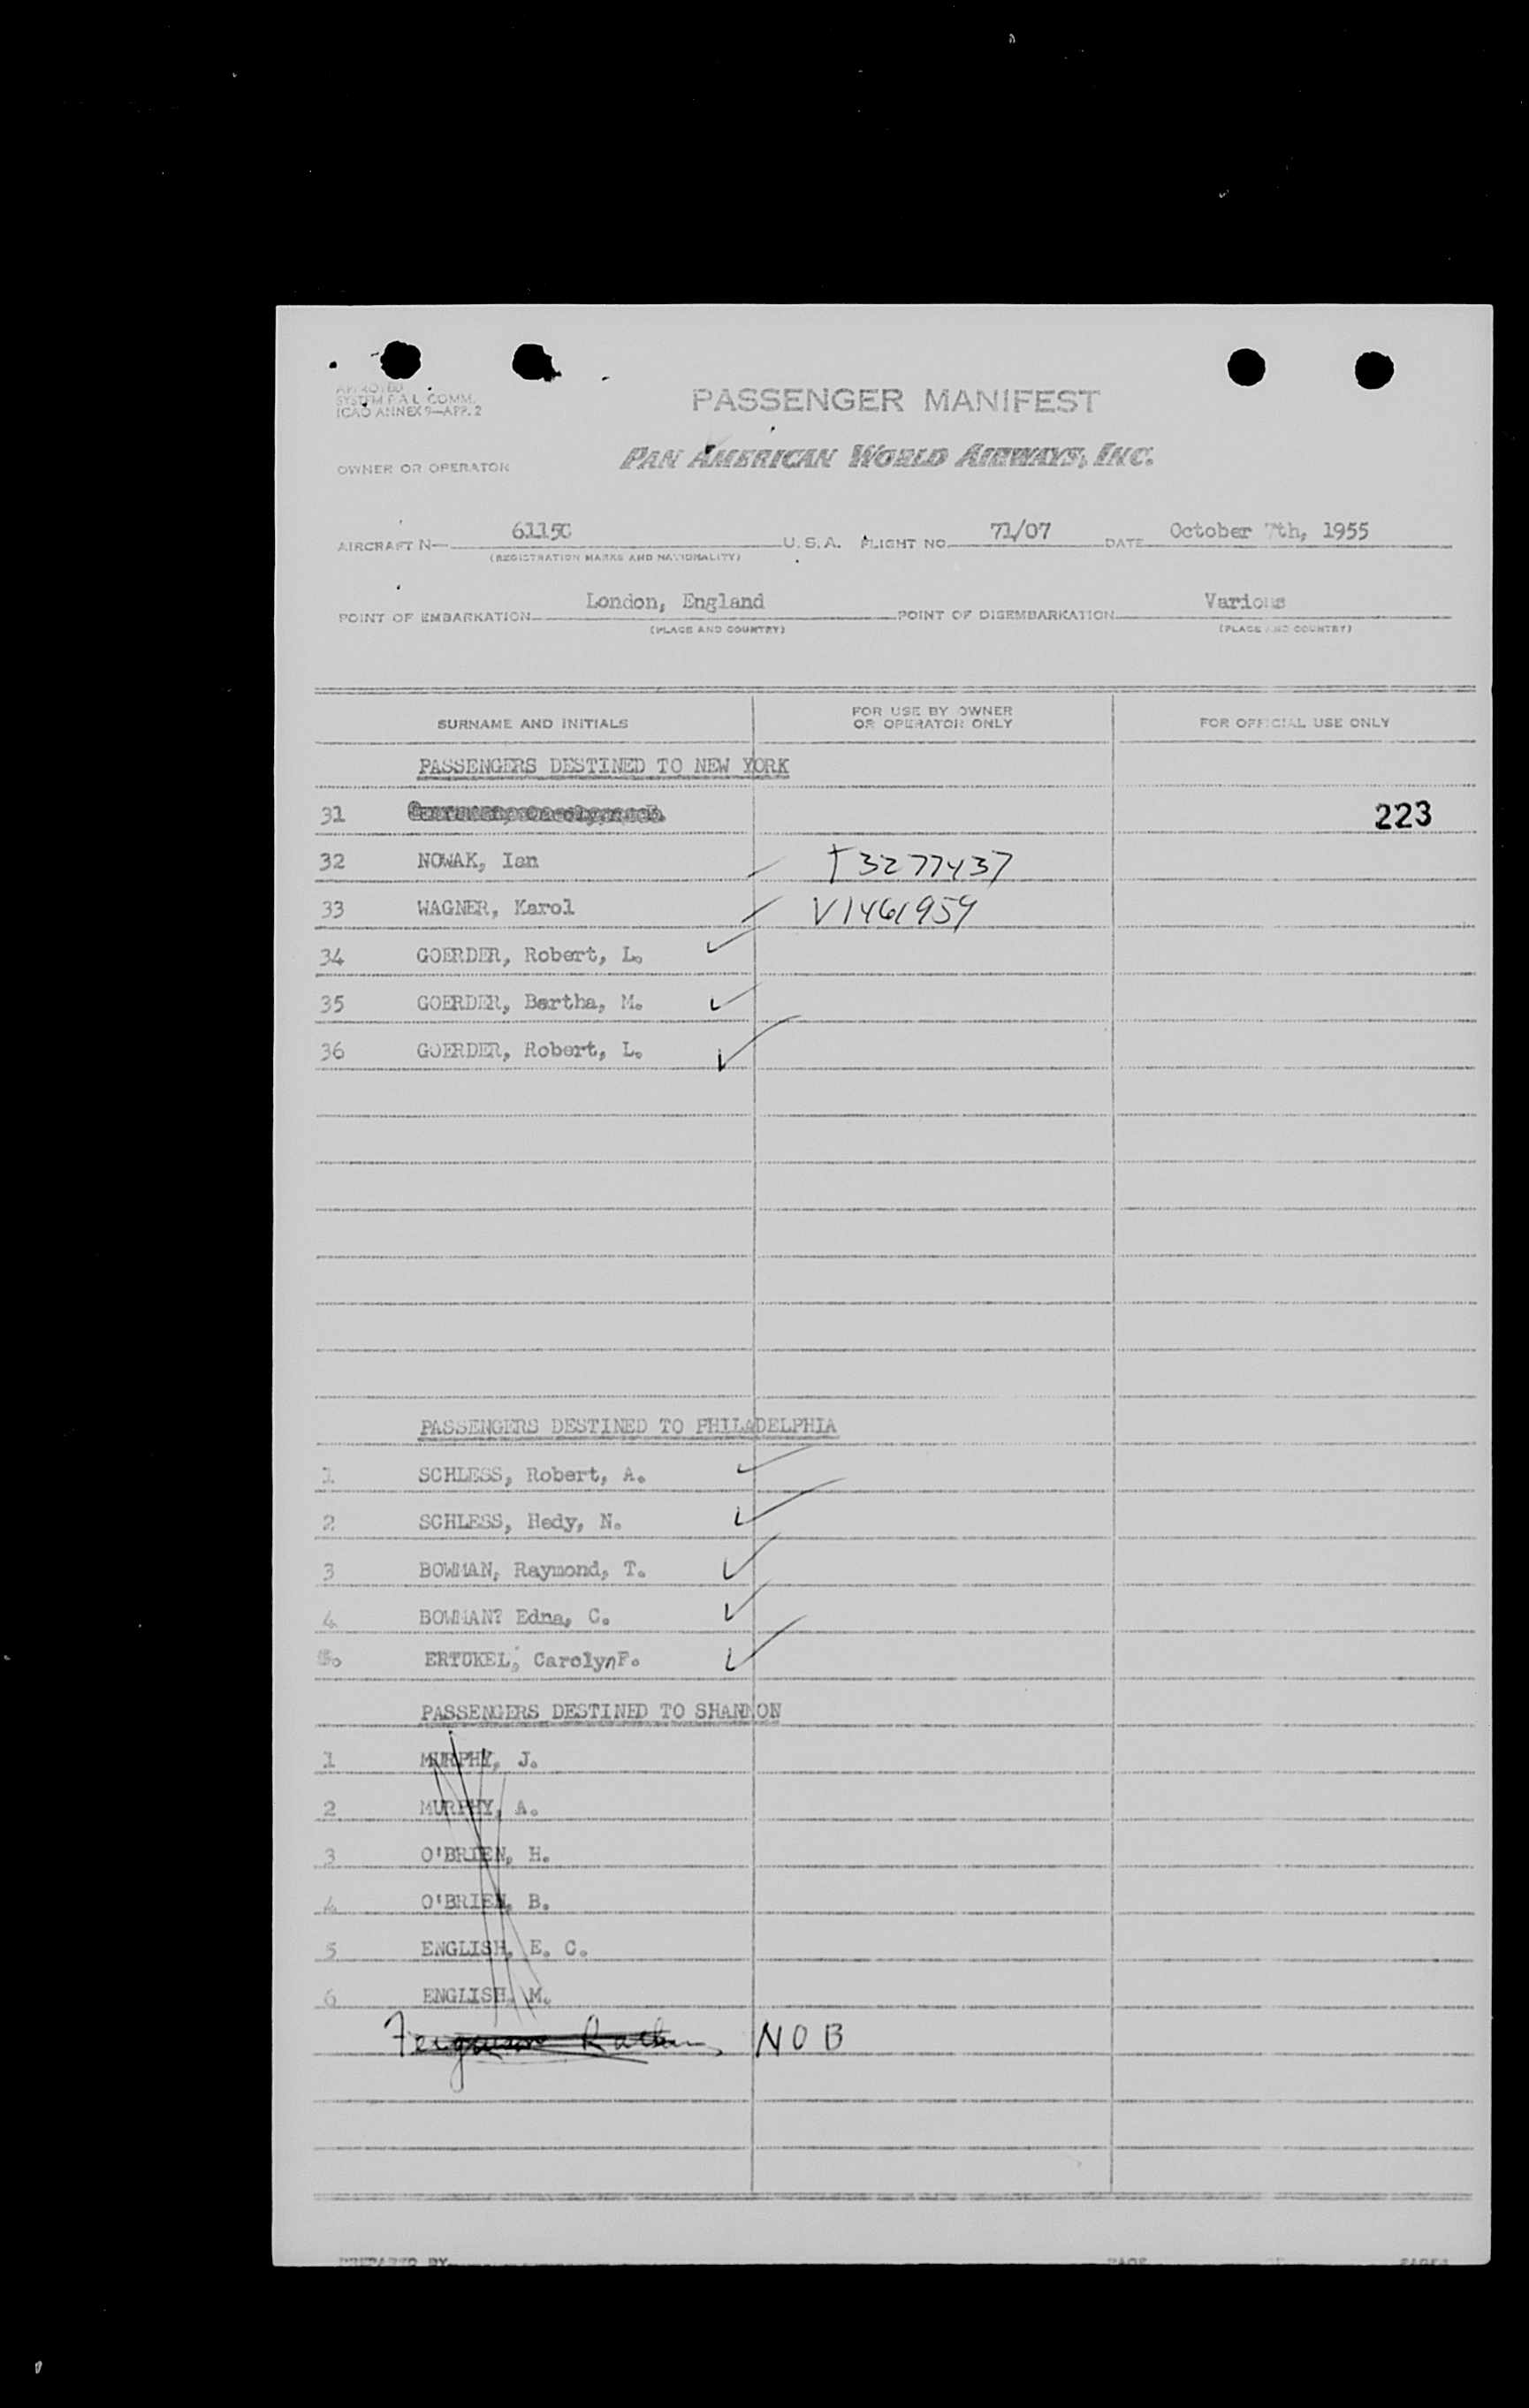 APPROVED
SYSTEM F.A.L. COMM.
ICAO ANNEX 9—APP. 2
PASSENGER MANIFEST
OWNER OR OPERATOR PAN AMERICAN WORLD AIRWAYS, INC.
AIRCRAFT N— 6115C U.S.A. FLIGHT NO. 71/07 DATE October 7th, 1955
(REGISTRATION MARKS AND NATIONALITY)
POINT OF EMBARKATION London, England POINT OF DISEMBARKATION Various
(PLACE AND COUNTRY) (PLACE AND COUNTRY)
SURNAME AND INITIALS FOR USE BY OWNER OR OPERATOR ONLY FOR OFFICIAL USE ONLY
PASSENGERS DESTINED TO NEW YORK
31 223
32 NOWAK, Ian T3277437
33 WAGNER, Karol V1461959
34 GOERDER, Robert, L.
35 GOERDER, Bertha, M.
36 GOERDER, Robert, L.
PASSENGERS DESTINED TO PHILADELPHIA
1 SCHLESS, Robert, A.
2 SCHLESS, Hedy, N.
3 BOWMAN, Raymond, T.
4 BOWMAN? Edna, C.
ERTUKEL, CarolynF.
PASSENGERS DESTINED TO SHANNON
1 MURPHY, J.
2 MURPHY, A.
3 O'BRIEN, H.
4 O'BRIEN, B.
5 ENGLISH, E. C.
6 ENGLISH, M.
NOB
PREPARED BY PAGE OF PAGES